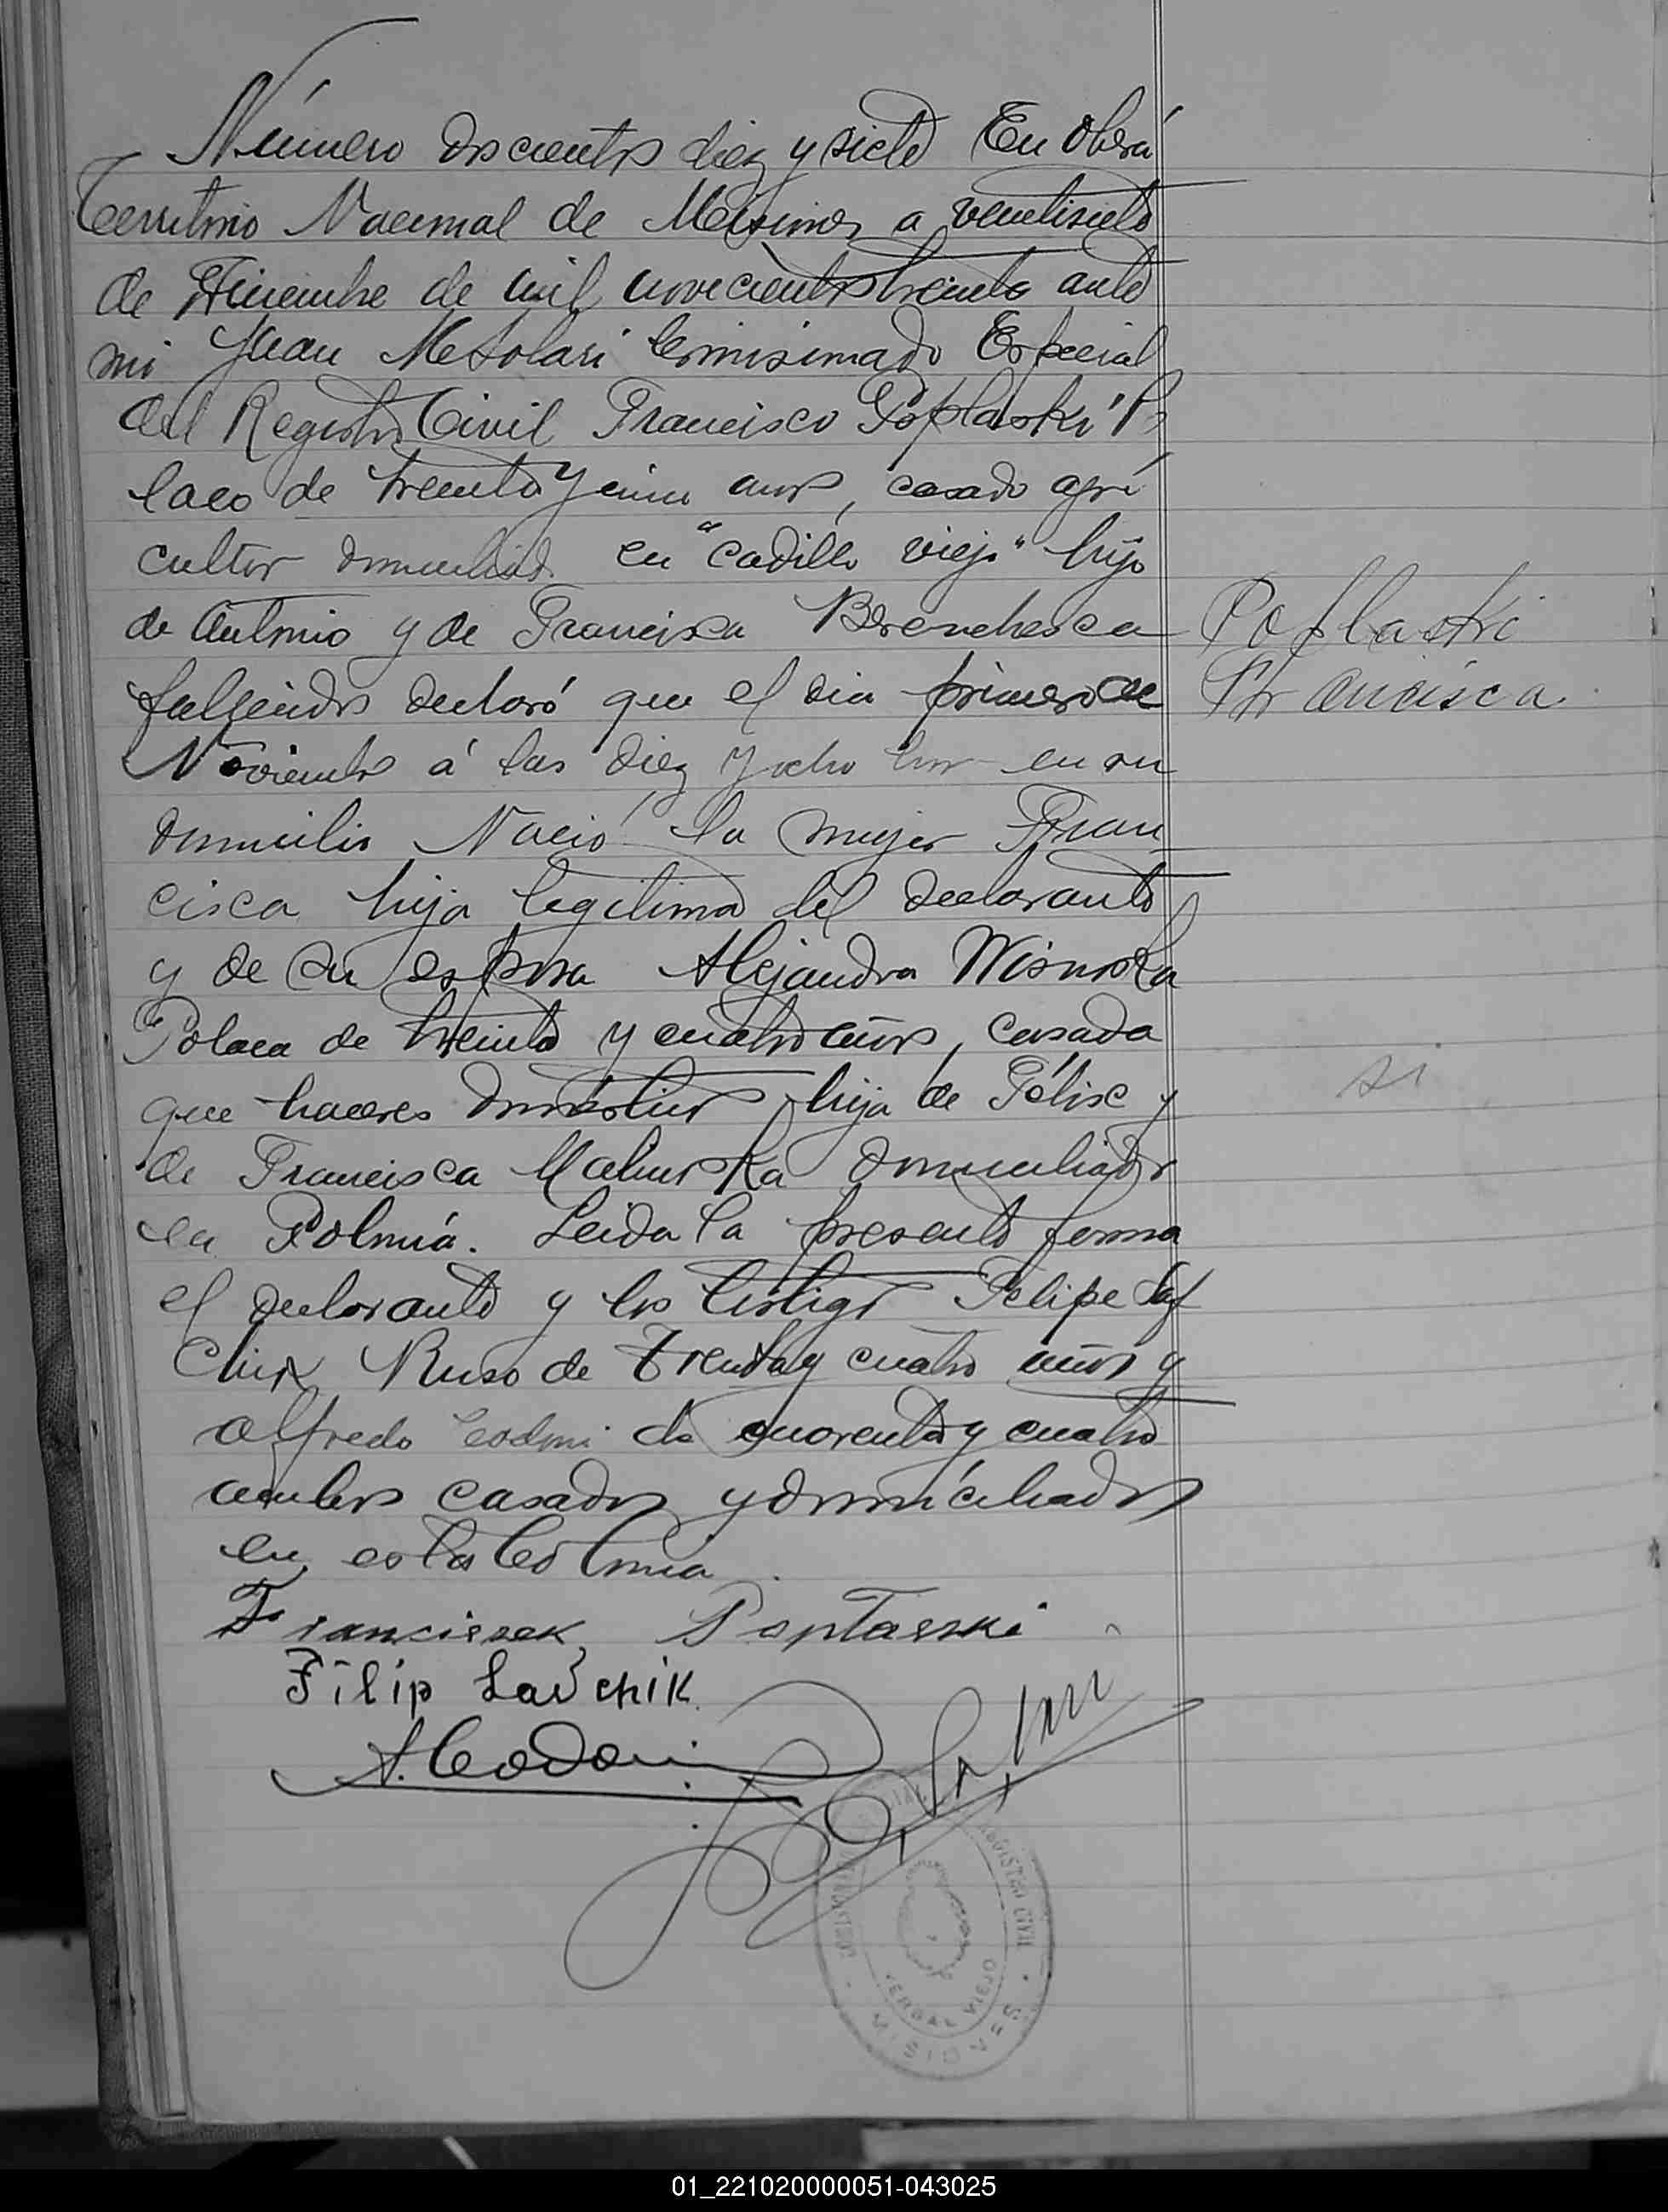 Número doscientos diez y siete En Oberá
Territorio Nacional de Misiones a veintisiete
de Diciembre de mil novecientos treinta ante
mi Juan M Solari Comisionado Especial
del Registro Civil Francisco Poplaski Po
laco de treinta y cinco años, casado agri
cultor domiciliado en "Cadillo viejo" hijo
de Antonio y de Francisca Brenchesca
fallecidos declaró que el dia primero de
Noviembre á las diez y ocho hs en su
domicilio Nació la mujer Fran
cisca hija legitima del declarante
y de su esposa Alejandra Wisnoska
Polaca de treinta y cuatro años, casada
que haceres domésticos hija de Félix y
de Francisca domiciliados
en Polonia. Leida la presente firma
el declarante y los testigos Felipe Laf
Chix Ruso de Trenta y cuatro años y
alfredo Codoni de cuarenta y cuatro
ambos casados y domiciliados
en esta Colonia
Poplaski
Francisca
si
Franciszek Poptaszki
Filip Lavchik
A. Codoni
REGISTRO CIVIL
YERBAL VIEJO
MISIONES
01_221020000051-043025